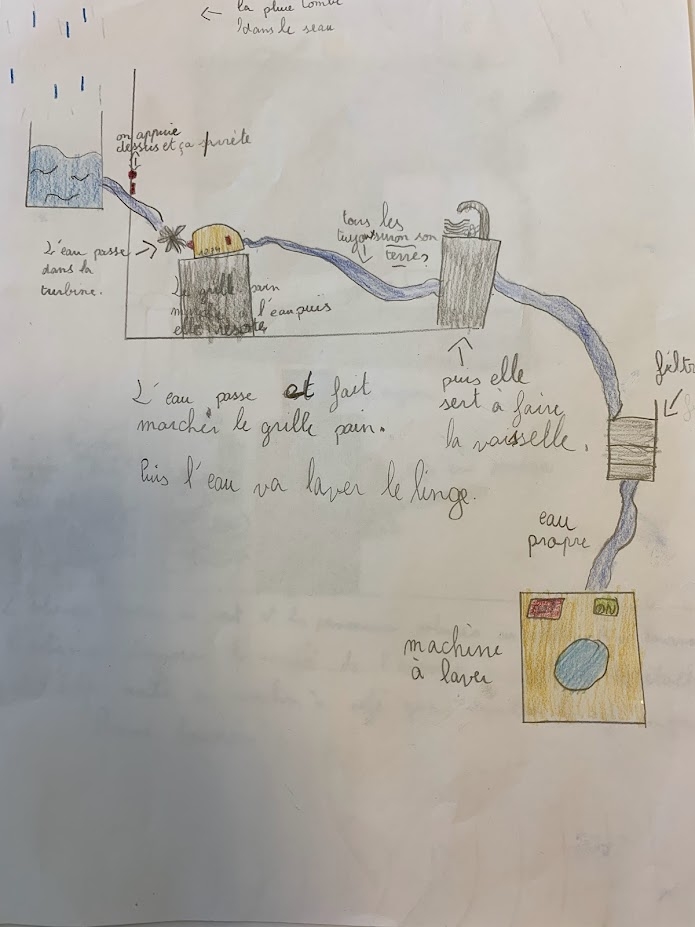 ← la pluie tombe
dans le seau
on appuie
dessus et ça
L'eau passe
dans la
turbine.
tous les
son
terre?
Le grille pain
à l'eau puis
puis elle
sert à faire
la vaisselle.
L'eau passe et fait
marcher le grille pain.
Puis l'eau va laver le linge.
filtr
eau
propre
ON
machine
à laver